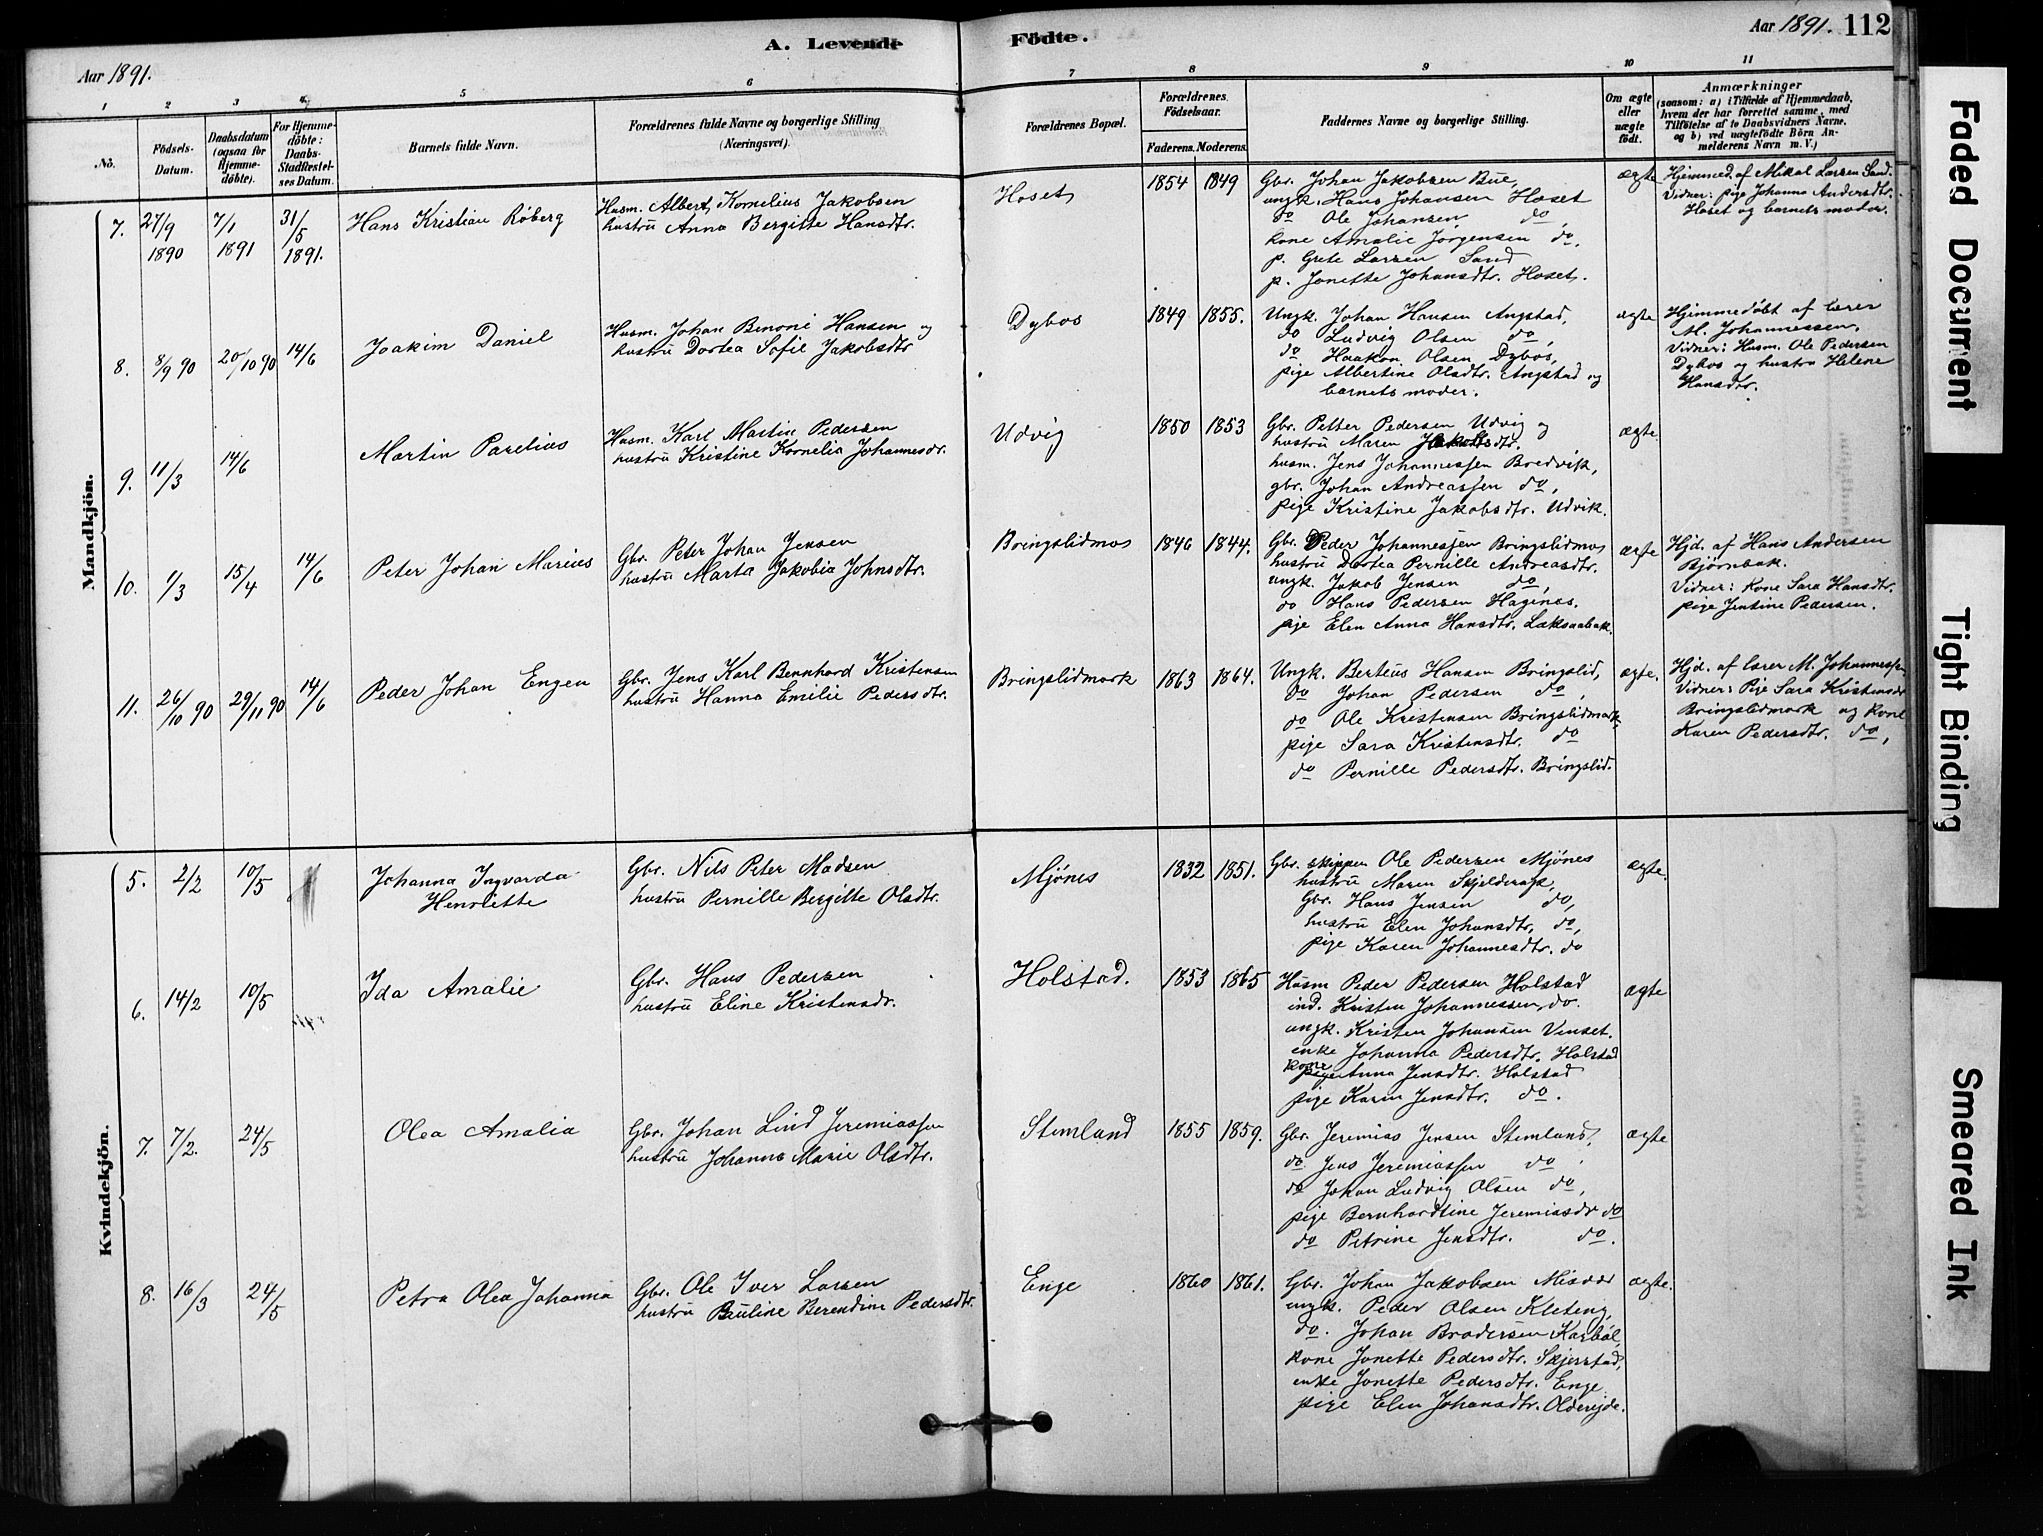 A. Levende Födte.
Aar 1891.
Aar 1891. 112
1 2 3 4 5 6 7 8 9 10 11
No.
Födsels-Datum.
Daabsdatum (ogsaa for Hjemme-döbte).
For Hjemme-döbte: Daabs-Stadfæstel-ses Datum.
Barnets fulde Navn.
Forældrenes fulde Navne og borgerlige Stilling (Næringsvei).
Forældrenes Bopæl.
Forældrenes Födselsaar.
Faderens. Moderens.
Faddernes Navne og borgerlige Stilling.
Om ægte eller uægte födt.
Anmærkninger
(saasom: a) i Tilfælde af Hjemmedaab, hvem der har forrettet samme, med Tilföielse af to Daabsvidners Navne, og b) ved uægtefödte Börn An-melderens Navn m. V.)
Mandkjön.
7. 27/9 1890 7/1 1891 31/5 1891.
Hans Kristian Röberg
Husm. Albert Kornelius Jakobsen
hustru Anna Bergitte Hansdtr.
Hoset
1854 1849
Gbr. Johan Jakobsen Bue,
ungk. Hans Johansen Hoset
do Ole Johansen do,
kone Amalie Jörgensen do.
p. Grete Larsen Sand
p. Jonette Johansdtr. Hoset.
ægte
Hjemmed. af Mikal Larsen Sand.
Vidner: pige Johanna Andersdtr.
Hoset og barnets moder.
8. 8/9 90 20/10 90 14/6
Joakim Daniel
Husm. Johan Benoni Hansen og
hustru Dortea Sofie Jakobsdtr
Dybos
1849 1855.
Ungk. Johan Hansen Angstad,
do Ludvig Olsen do,
do Haakon Olsen Dybos,
pige Albertine Olsdtr. Angstad og
barnets moder.
ægte
Hjemmedöbt af lærer
M. Johannessen.
Vidner: Husm. Ole Pedersen
Dybos og hustru Helene
Hansdtr.
9. 11/3 14/6
Martin Parelius
Husm. Karl Martin Pedersen
hustru Kristine Kornelia Johannesdr.
Udvig
1850 1853
Gbr. Petter Pedersen Udvig og
hustru Maren Jakobsdtr.
husm. Jens Johannessen Bredvik,
gbr. Johan Andreassen do,
pige Kristine Jakobsdtr. Udvik.
ægte
10. 1/3 15/4 14/6
Peter Johan Marius
Gbr. Peter Johan Jensen
hustru Marta Jakobia Johnsdtr.
Bringslidmo
1846 1844.
Gbr. Peder Johannessen Bringslidmo
hustru Dortea Pernille Andreasdtr.
ungk. Jakob Jensen do,
do Hans Pedersen Hagenæs.
pige Elen Anna Hansdtr. Laksaabak.
ægte
Hjd. af Hans Andersen
Björnbak.
Vidner: Kone Sara Hansdtr.
pige Jentine Pedersen.
11. 26/10 90 29/11 90 14/6
Peder Johan Engen
Gbr. Jens Karl Bernhard Kristensen
hustru Hanna Emilie Pedersdtr.
Bringslidmark
1863 1864.
Ungk. Berteus Hansen Bringslid,
do Johan Pedersen do,
do Ole Kristensen Bringslidmark,
pige Sara Kristensdtr. do
do Pernille Pedersdtr. Bringslid.
ægte.
Hjd. af lærer M. Johannessen
Vidner: Pige Sara Kristensdr
Bringslidmark og kone
Karen Pedersdtr. do,
Kvindekjön.
5. 2/2 10/5
Johanna Ingvarda
Henriette
Gbr. Nils Peter Madsen
hustru Pernille Bergitte Olsdtr.
Mjönes
1832 1851.
Gbr. skipper Ole Pedersen Mjönes
hustru Maren
Gbr. Hans Jensen do,
hustru Elen Johansdtr. do,
pige Karen Johannesdtr. do
ægte.
6. 14/2 10/5
Ida Amalie
Gbr. Hans Pedersen
hustru Eline Kristensdr.
Holstad.
1853 1865
Husm Peder Pedersen Holstad
ind. Kristen Johannessen, do.
ungk. Kristen Johansen Venset.
enke Johanna Pedersdtr. Holstad
kone Anna Jensdtr. Holstad
pige Karen Jensdtr. do.
ægte
7. 7/2. 24/5
Olea Amalia
Gbr. Johan Lind Jeremiassen
hustru Johanna Marie Olsdtr.
Stemland
1855 1859.
Gbr. Jeremias Jensen Stemland,
do Jens Jeremiassen do
do Johan Ludvig Olsen do,
pige Bernhardtine Jeremiasdr do
do Petrine Jensdtr. do.
ægte
8. 16/3 24/5
Petra Olea Johanna
Gbr. Ole Iver Larsen
hustru Berendine Pedersdtr.
Enge
1860 1861.
Gbr. Johan Jakobsen Misvær
ungk. Peder Olsen Kleteng,
do. Johan Brodersen Karböl,
kone Jonette Pedersdtr. Skjerstad,
enke Jonette Pedersdtr. Enge
pige Elen Johansdtr. Oldereide.
ægte.
Faded Document
Tight Binding
Smeared Ink